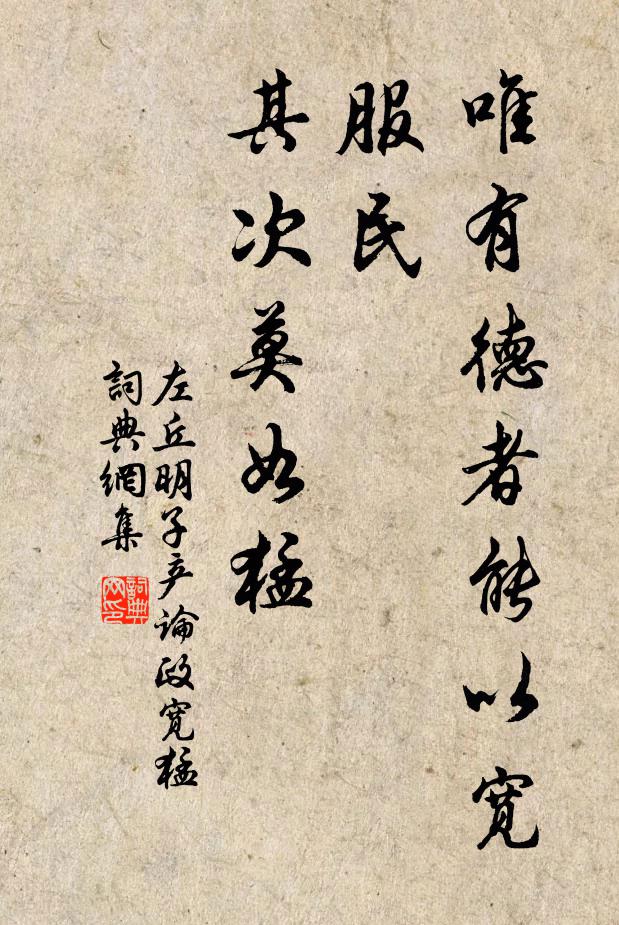 唯有德者能以寬
服民
其次莫如猛
左丘明子产論政寬猛
詞典網集
詞典
网印